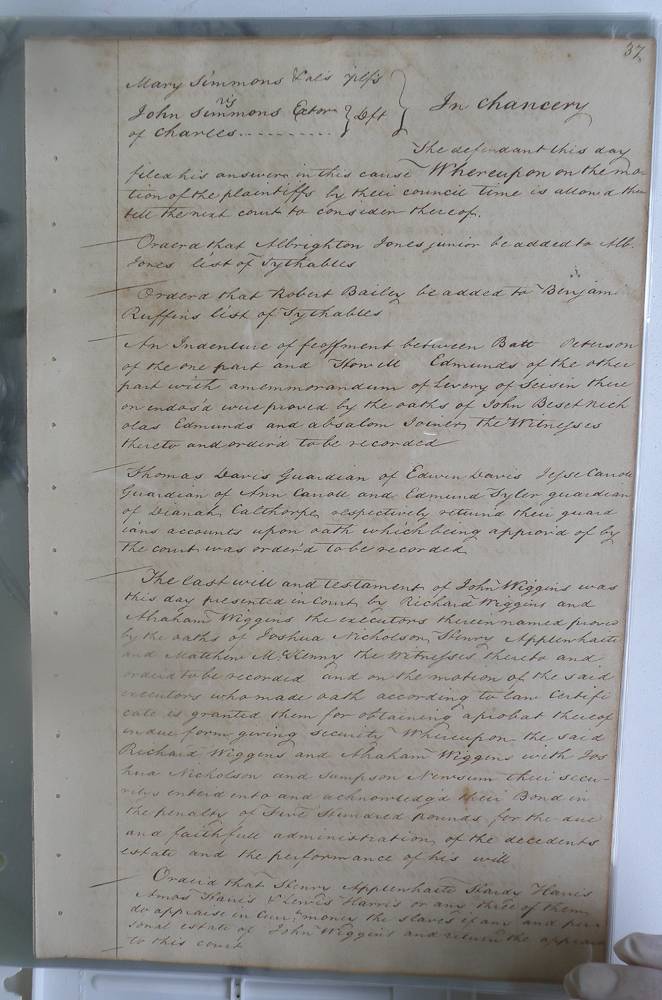 37
Mary Simmons & als plfs
John Simmons Extor
of Charles .......... Dft
In Chancery
The defendant this day
filed his answer in this cause Whereupon on the mo
tion of the plaintiffs by their council time is allowed them
till the next court to consider thereof.
Orderd that Albrighton Jones junior be added to Alb.
Jones list of Tythables
Orderd that Robert Bailey be added to Benjam
Ruffins list of Tythables
An Indenture of feoffment between Batt Peterson
of the one part and Howell Edmunds of the other
part with a memmorandum of Livery of Seisin there
on endos'd were proved by the oaths of John Beset Nich
olas Edmunds and absalom Joiner the Witnesses
thereto and order'd to be recorded
Thomas Davis Guardian of Edwin Davis Jesse Carroll
Guardian of Ann Caroll and Edmund Tyler guardian
of Dianah Calthorpe respectively returnd their guard
ians accounts upon oath which being approv'd of by
the court was order'd to be recorded
The last will and testament of John Wiggins was
this day presented in Court by Richard Wiggins and
Abraham Wiggins the executors therein named proved
by the oaths of Joshua Nicholson Henry Applewhaite
and Matthew McKenny the Witnesses thereto and
orderd to be recorded and on the motion of the said
executors who made oath according to law Certifi
cate is granted them for obtaining a probat thereof
in due form giving security Whereupon the said
Richard Wiggins and Abraham Wiggins with Jos
hua Nicholson and Sampson Newsum their secu-
rities enterd into and acknowledg'd their Bond in
the penalty of Five Hundred pounds for the due
and faithfull administration of the decedents
estate and the performance of his will
Orderd that Henry Applewhaite Hardy Harris
Amos Harris & Lewis Harris or any three of them
do appraise in Curr.t money the slaves if any and per
sonal estate of John Wiggins and return the appraise
to this court